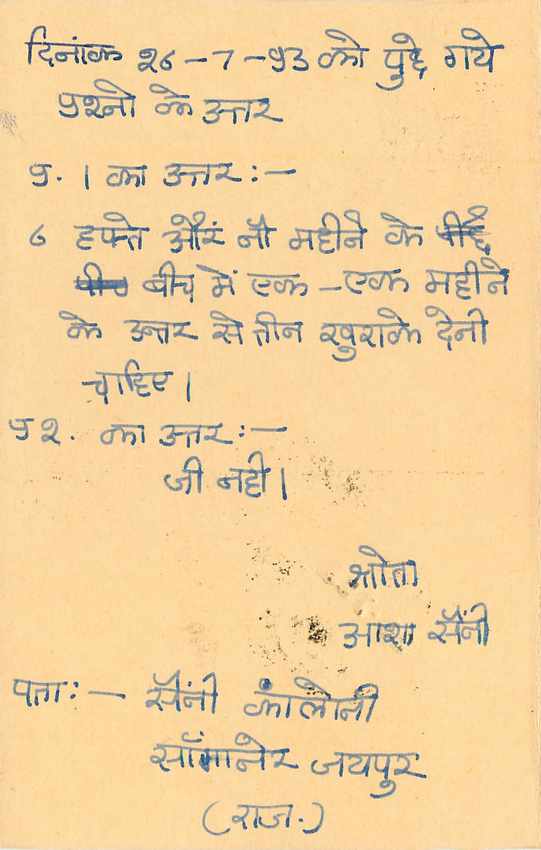 दिनांक २६-7-93 को पुछे गये
प्रश्नो के उत्तर
प्र. 1 का उत्तर :-
६ हफ्ते और नौ महीने के
बीच में एक-एक महीने
के उन्तर से तीन खुराके देनी
चाहिए।
प्र २. का उत्तर :-
जी नही।
श्रोता
आशा सैंनी
पता :- सैंनी कॉलोनी
साँगानेर जयपुर
(राज.)